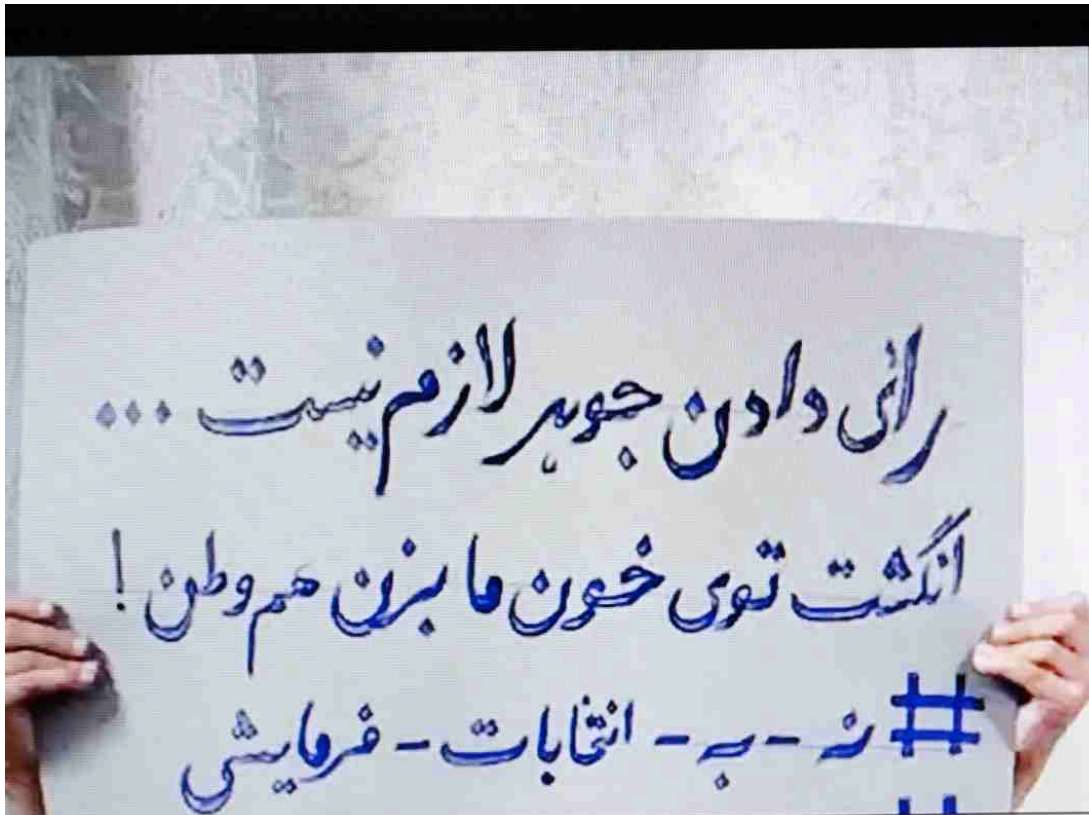 رائ دادن جوهر لازم نیست ...
انگشت توی خون ما بزن هم وطن !
# نه - به - انتخابات - فرمایشی